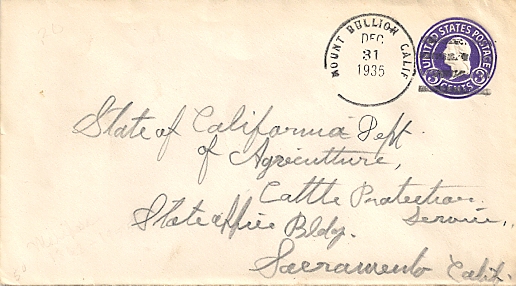 MOUNT BULLION CALIF
DEC
31
1935
UNITED STATES POSTAGE
3 CENTS 3
State of California Dept.
of Agriculture,
Cattle Protection
Service,
State office Bldg.
Sacramento Calif.